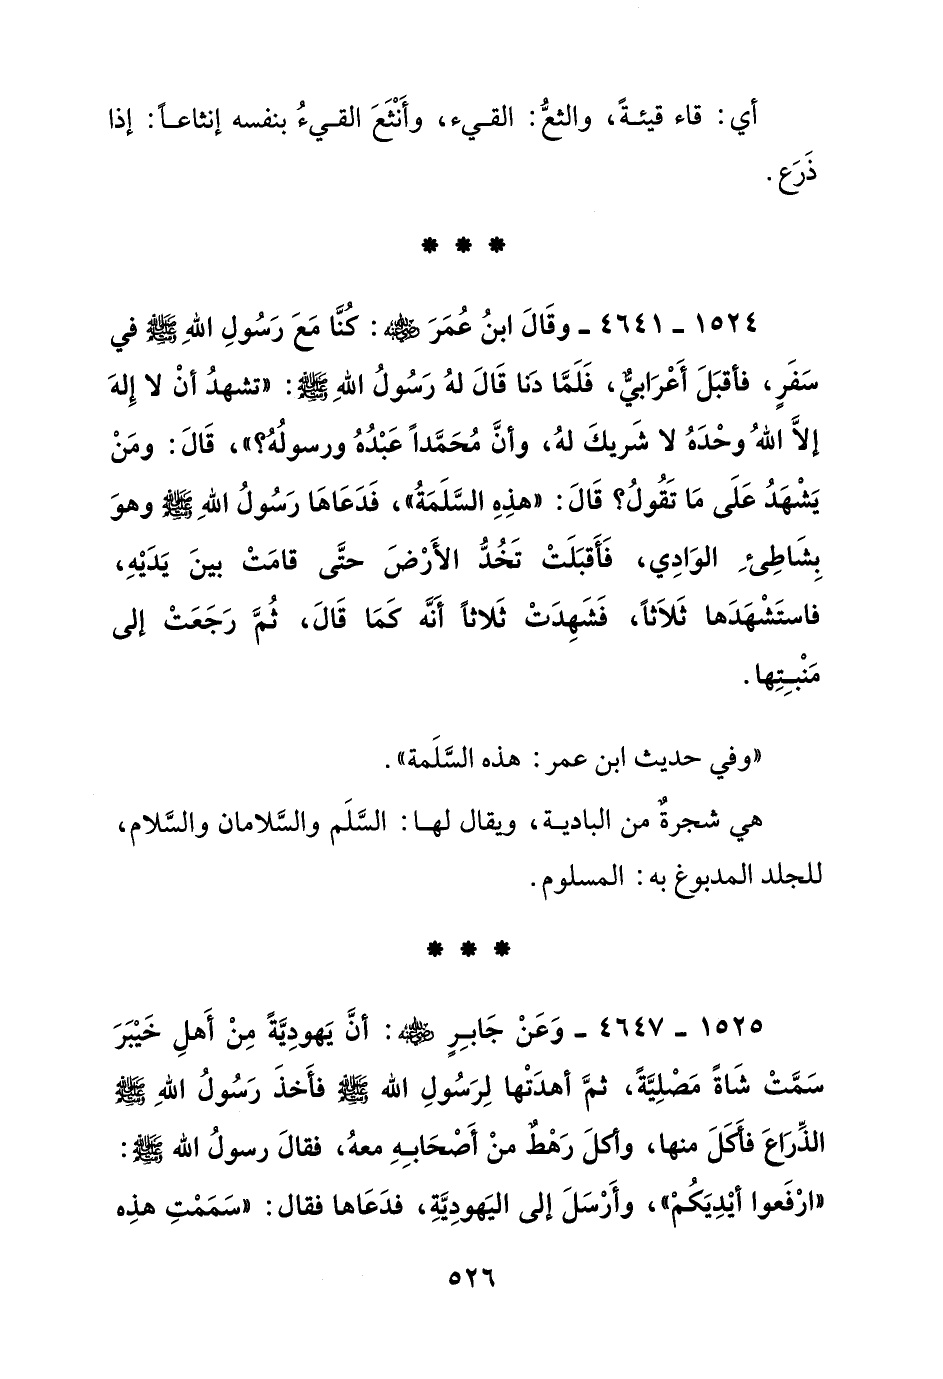 أي: قاء قيئةً، والثعُّ: القيء، وأَنْثَعَ القيءُ بنفسه إنثاعاً: إذا
ذَرَع.
* * *
١٥٢٤ - ٤٦٤١ - وقَالَ ابنُ عُمَرَ ﷺ: كُنَّا مَعَ رَسُولِ اللهِ ﷺ في
سَفَرٍ، فأقبَلَ أَعْرَابيٌّ، فَلَمَّا دَنا قَالَ لهُ رَسُولُ اللهِ ﷺ: «تشهدُ أنْ لا إلهَ
إلاَّ اللهُ وحْدَهُ لا شَريكَ لهُ، وأنَّ مُحَمَّداً عَبْدُهُ ورسولُهُ؟»، قَالَ: ومَنْ
يَشْهَدُ عَلَى مَا تَقُولُ؟ قَالَ: «هذِهِ السَّلَمَةُ»، فَدَعَاهَا رَسُولُ اللهِ ﷺ وهوَ
بِشَاطِئِ الوَادِي، فَأَقبَلَتْ تَخُدُّ الأَرْضَ حتَّى قامَتْ بينَ يَدَيْهِ،
فاستَشْهَدَها ثَلاَثاً، فَشَهِدَتْ ثَلاثاً أنَّه كَمَا قَالَ، ثُمَّ رَجَعَتْ إلى
مَنْبِتِها.
«وفي حديث ابن عمر: هذه السَّلَمة».
هي شجرةٌ من البادية، ويقال لها: السَّلَم والسَّلامان والسَّلام،
للجلد المدبوغ به: المسلوم.
* * *
١٥٢٥ - ٤٦٤٧ - وَعَنْ جَابِرٍ ﷺ: أنَّ يَهودِيَّةً مِنْ أَهلِ خَيْبَرَ
سَمَّتْ شَاةً مَصْلِيَّةً، ثمَّ أهدَتْها لِرَسُولِ الله ﷺ فأَخذَ رَسُولُ اللهِ ﷺ
الذِّرَاعَ فأَكَلَ منها، وأكلَ رَهْطٌ منْ أَصْحَابِهِ معهُ، فقالَ رسولُ الله ﷺ:
«ارْفَعوا أيْدِيَكُمْ»، وأَرْسَلَ إلى اليَهودِيَّةِ، فدَعَاها فقال: «سَمَمْتِ هذِه
٥٢٦